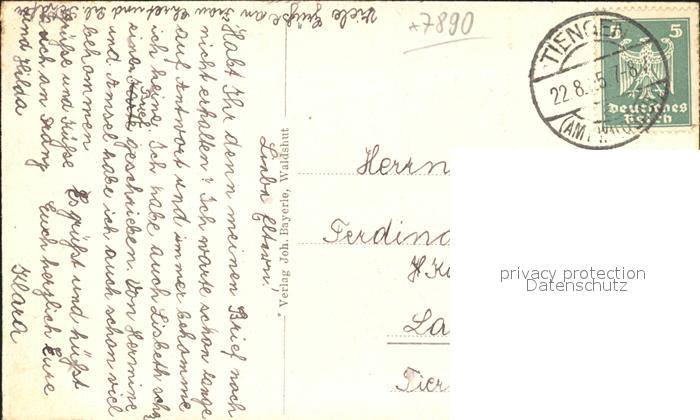 Liebe Eltern!
Habt Ihr denn meinen Brief noch
nicht erhalten? Ich warte schon lange
auf Antwort und immer bekomme
ich keine. Ich habe auch Lisbeth schon
einen Brief geschrieben. Von Hermine
und Amsel habe ich auch schon viel
bekommen
Es grüßt und küßt
Grüße und Küße
Euch herzlich Eure
auch an
und Hilda
Klara
Viele Grüße an Frau
und
*7890
Verlag Joh. Bayerle, Waldshut
TIENGEN
22.8.25 7-8
(AMT
5 5
Deutsches
Reich
Herrn
Ferdinand
H
La
Tier
privacy protection
Datenschutz